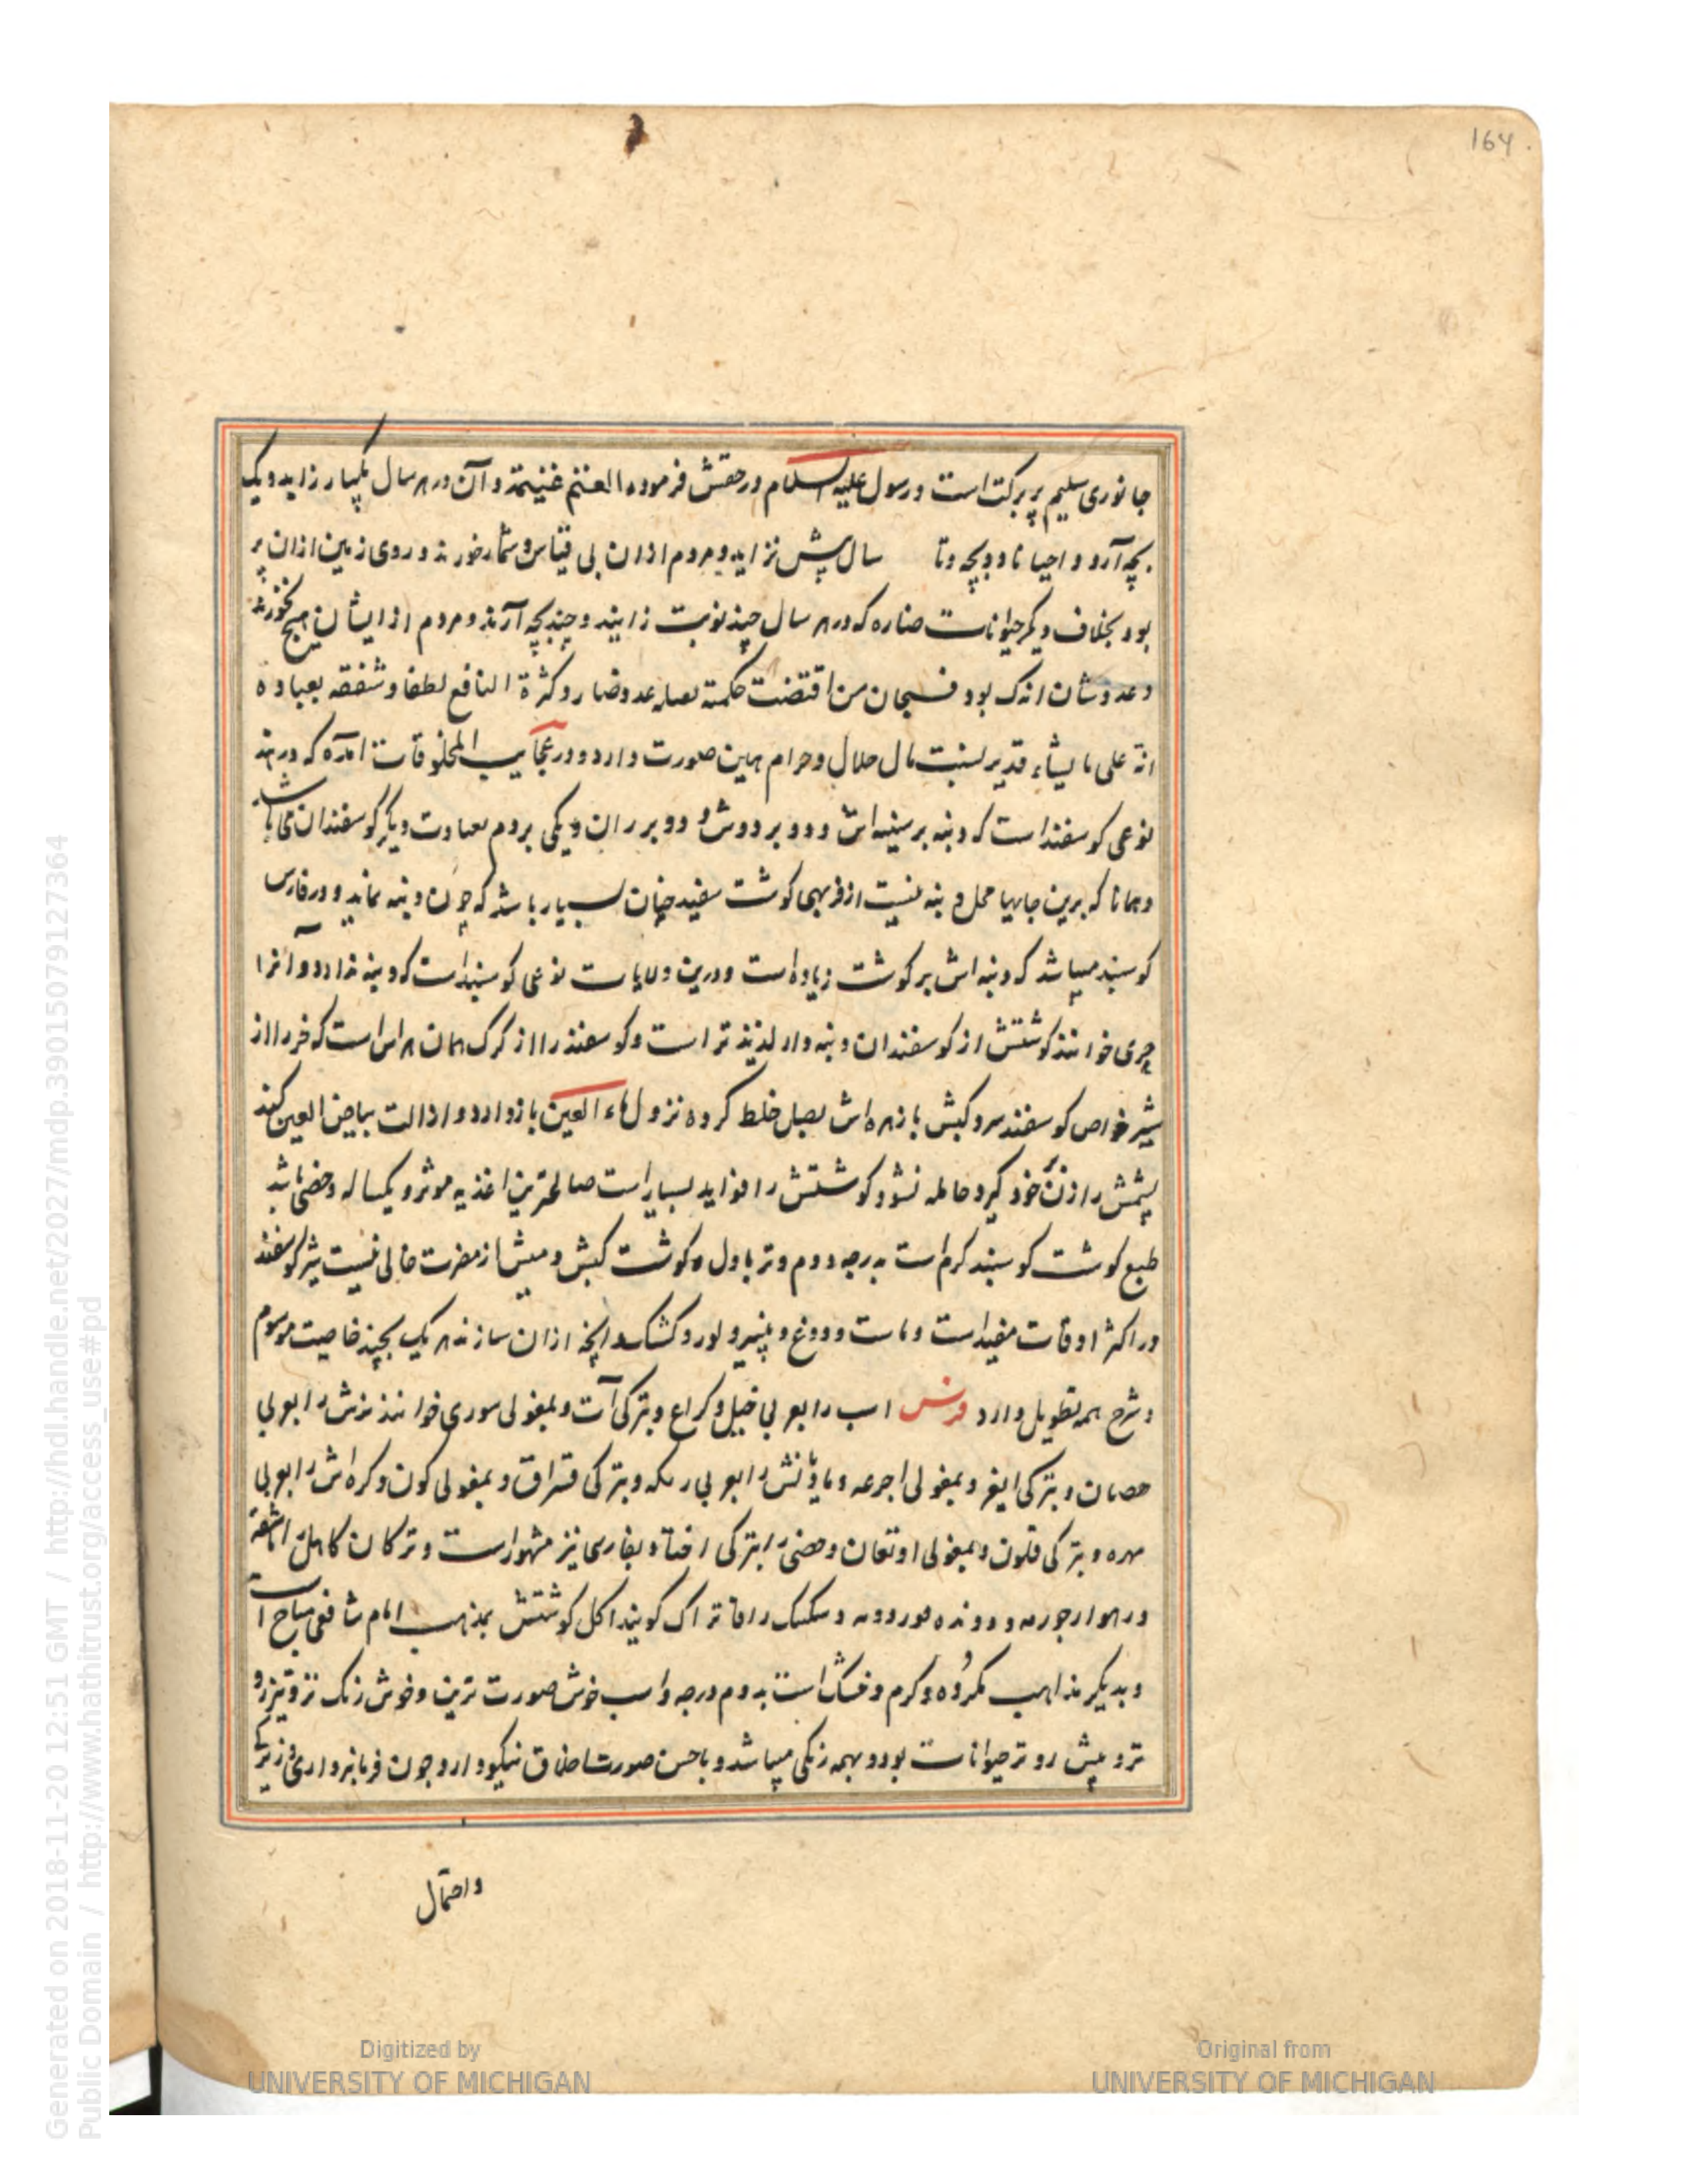 164
جانوری سلیم پر برکت است و رسول علیه السلام در حقش فرموده الغنم غنیمة و آن در هر سال یکبار زاید و یک
بچه آرد و احیانا دو بچه و تا سال پیش نزاید و مردم ازان بی قیاس و شمار خورند و روی زمین ازان پر
بود بخلاف دیگر حیوانات ضاره که در هر سال چند نوبت زایند و چند بچه آرند و مردم از ایشان هیچ نخورند
و عددشان اندک بود فسبحان من اقتضت حکمته عدد ضار و کثرة النافع لطفا و شفقه بعباده
انه علی ما یشاء قدیر نسبت مال حلال و حرام همین صورت دارد و در عجایب المخلوقات آمده که در هند
نوعی کوسفند است که دنبه بر سینه اش و دو بر دوش و دو بر ران و یکی بر دم بعادت دیگر کوسفندان می باشد
و همانا که برین جایها محل دنبه نیست از فربهی کوشت سفید چنان بسیار باشد که چون دنبه نماید و در فارس
کوسبند میباشد که دنبه اش بر کوشت زیاده است و درین ولایات نوعی کوسبند است که دنبه ندارد و آنرا
چری خوانند کوشتش از کوسفندان دنبه دار لذیذتر است و کوسفند را از کرک همان هراس است که خر را از
شیر خواص کوسفند سرو کبش با زهره اش بعسل خلط کرده نزول ماء العین باز دارد و ازالت بیاض العین کند
پشمش را زن خود کیرد حامله نشود کوشتش را فواید بسیار است صالحترین اغذیه موثر و یکساله و خصی باشد
طبع کوشت کوسبند کرم است بدرجه دوم و تر باول و کوشت کبش و میش از مضرت خالی نیست شیر کوسفند
در اکثر اوقات مفید است و ماست و دوغ و پنیر و لور و کشک و آنچه ازان سازند هر یک بچند خاصیت موسوم
و شرح همه تطویل دارد فرس اسب را بعربی خیل و کراع و بترکی آت و بمغولی موری خوانند نرش را بعربی
حصان و بترکی ایغر و بمغولی اجرغه و مادیانش را بعربی رمکه و بترکی قسراق و بمغولی کون و کره اش را بعربی
مهره و بترکی قلون و بمغولی اونغان و خصی را بترکی اخته و بفارسی نیز مشهور است و ترکان کاهل را
و رهوار جورمه و دونده و سکسک را کویند اکل کوشتش بمذهب امام شافعی مباح است
و بدیکر مذاهب مکروه و کرم و خشک است بدوم درجه و اسب خوش صورت ترین و خوش رنک تر و تیزرو
تر و پیش رو تر حیوانات بود و بهمه رنکی میباشد و با حسن صورت اخلاق نیکو دارد چون فرمانبرداری و زیرکی
و احتمال
Generated on 2018-11-20 12:51 GMT / http://hdl.handle.net/2027/mdp.39015079127364
Public Domain / http://www.hathitrust.org/access_use#pd
Digitized by
UNIVERSITY OF MICHIGAN
Original from
UNIVERSITY OF MICHIGAN